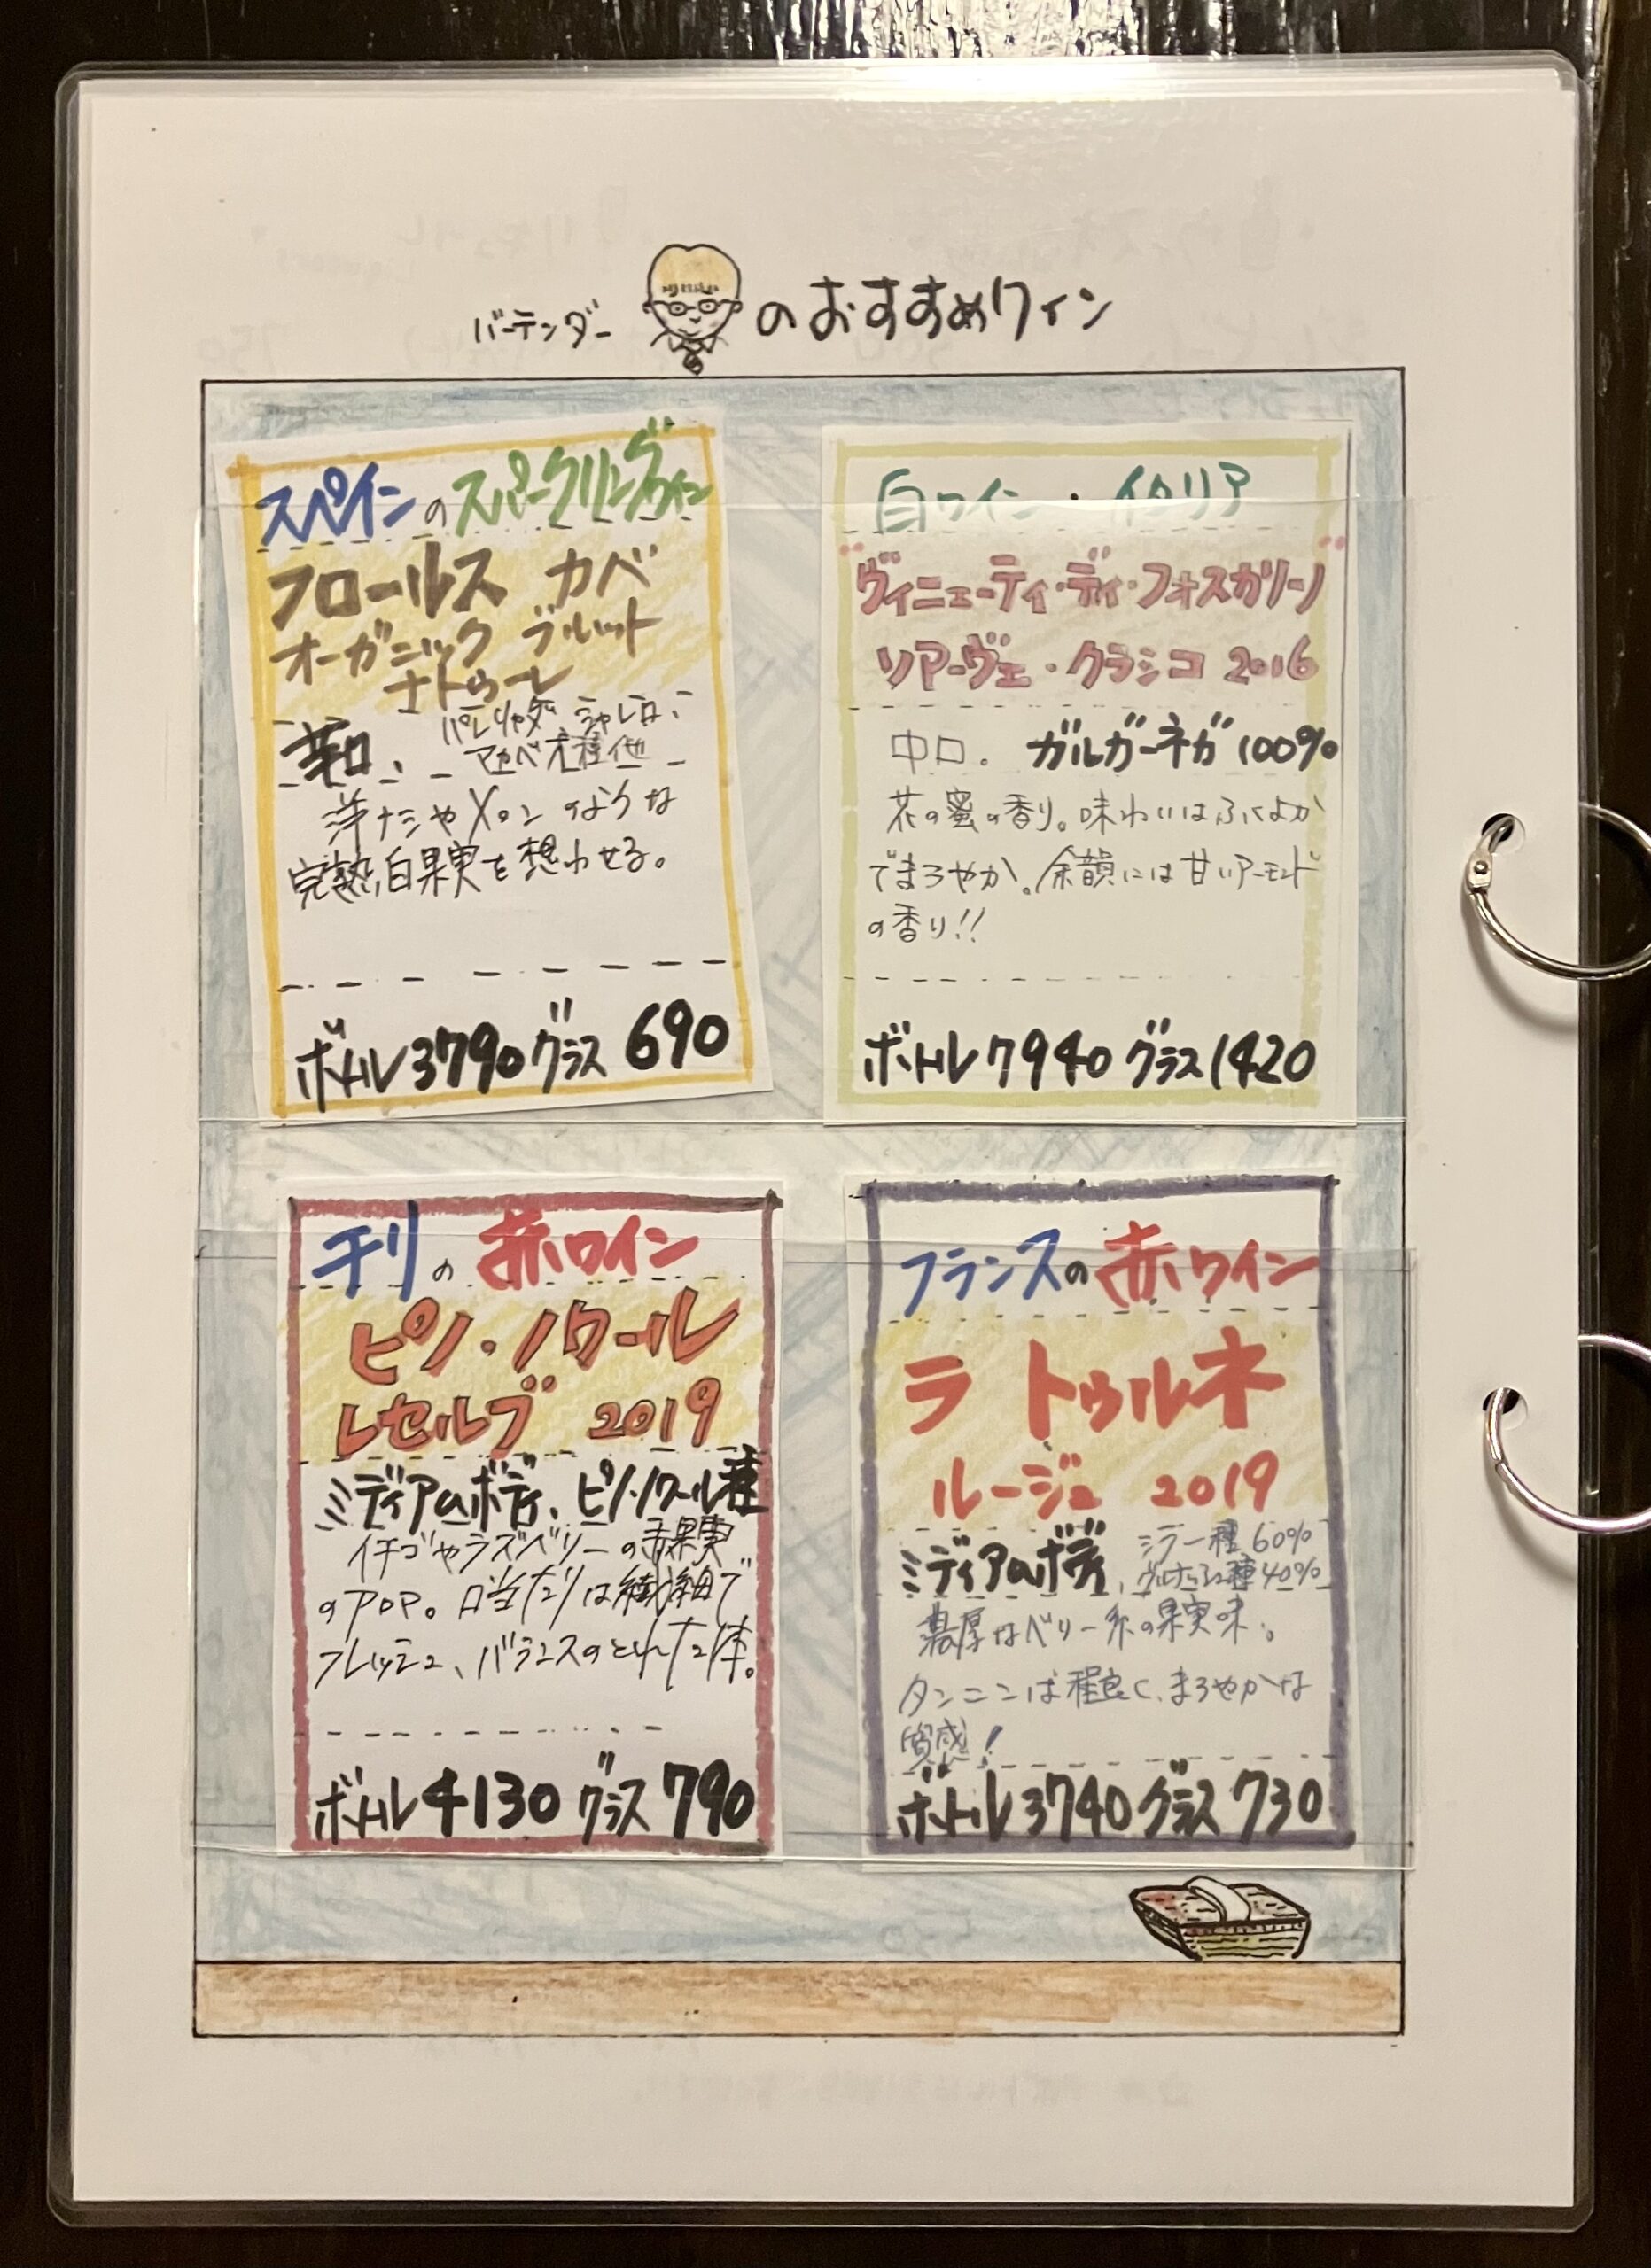 バーテンダー のおすすめワイン
スペインのスパークリングワイン
フロールス カベ
オーガニック ブルット
ナトゥーレ
辛口、パレリャダ、シャレロ、
マカベオ種他
洋ナシやメロンのような
完熟白果実を想わせる。
ボトル3790グラス690
白ワイン・イタリア
"ヴィニェーティ・ディ・フォスカリーノ"
ソアーヴェ・クラシコ 2016
中口。ガルガーネガ100%
花の蜜の香り。味わいはふくよか
でまろやか。余韻には甘いアーモンド
の香り!!
ボトル7940グラス1420
チリの赤ワイン
ピノ・ノワール
レセルブ 2019
ミディアムボディ、ピノ・ノワール種
イチゴやラズベリーの赤果実
のアロマ。口当たりは繊細で
フレッシュ、バランスのとれた体。
ボトル4130グラス790
フランスの赤ワイン
ラ トゥルネ
ルージュ 2019
ミディアムボディ、シラー種60%
グルナッシュ種40%
濃厚なベリー系の果実味。
タンニンは程良く、まろやかな
質感!
ボトル3740グラス730